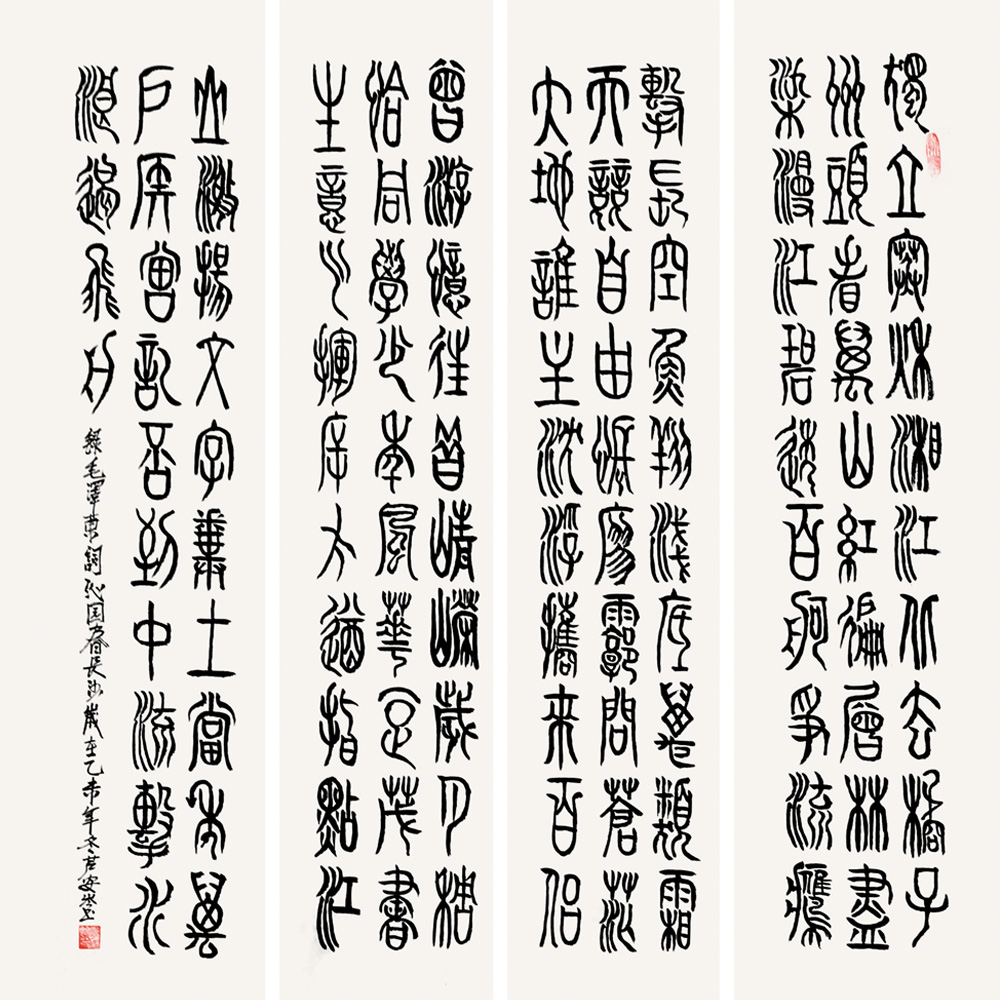 獨立寒秋湘江北去橘子
州頭看萬山紅遍層林盡
染漫江碧透百舸爭流鷹
擊長空魚翔淺底萬類霜
天競自由悵寥廓問蒼茫
大地誰主沈浮攜來百侶
曾游憶往昔崢嶸歲月稠
恰同學少年風華正茂書
生意氣揮斥方遒指點江
山激揚文字糞土當年萬
戶侯曾記否到中流擊水
浪遏飛舟
錄毛澤東詞沁园春長沙歲在乙未年冬